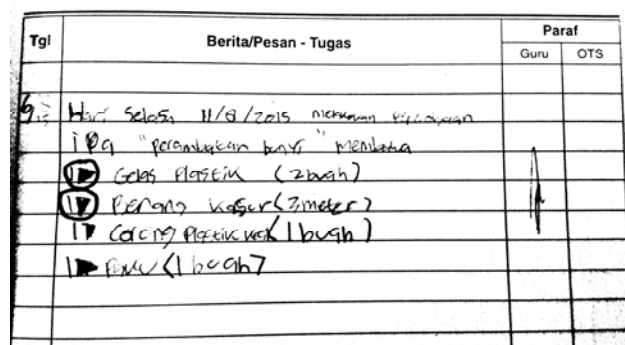 Tgl Berita/Pesan - Tugas Paraf
Guru OTS
Hari Selasa 11/8/2015 melakukan percobaan
ipa "perambatan bunyi" membawa
Gelas Plastik (2 buah)
Benang kasur (3 meter)
Corong Plastik (1 buah)
(1 buah)